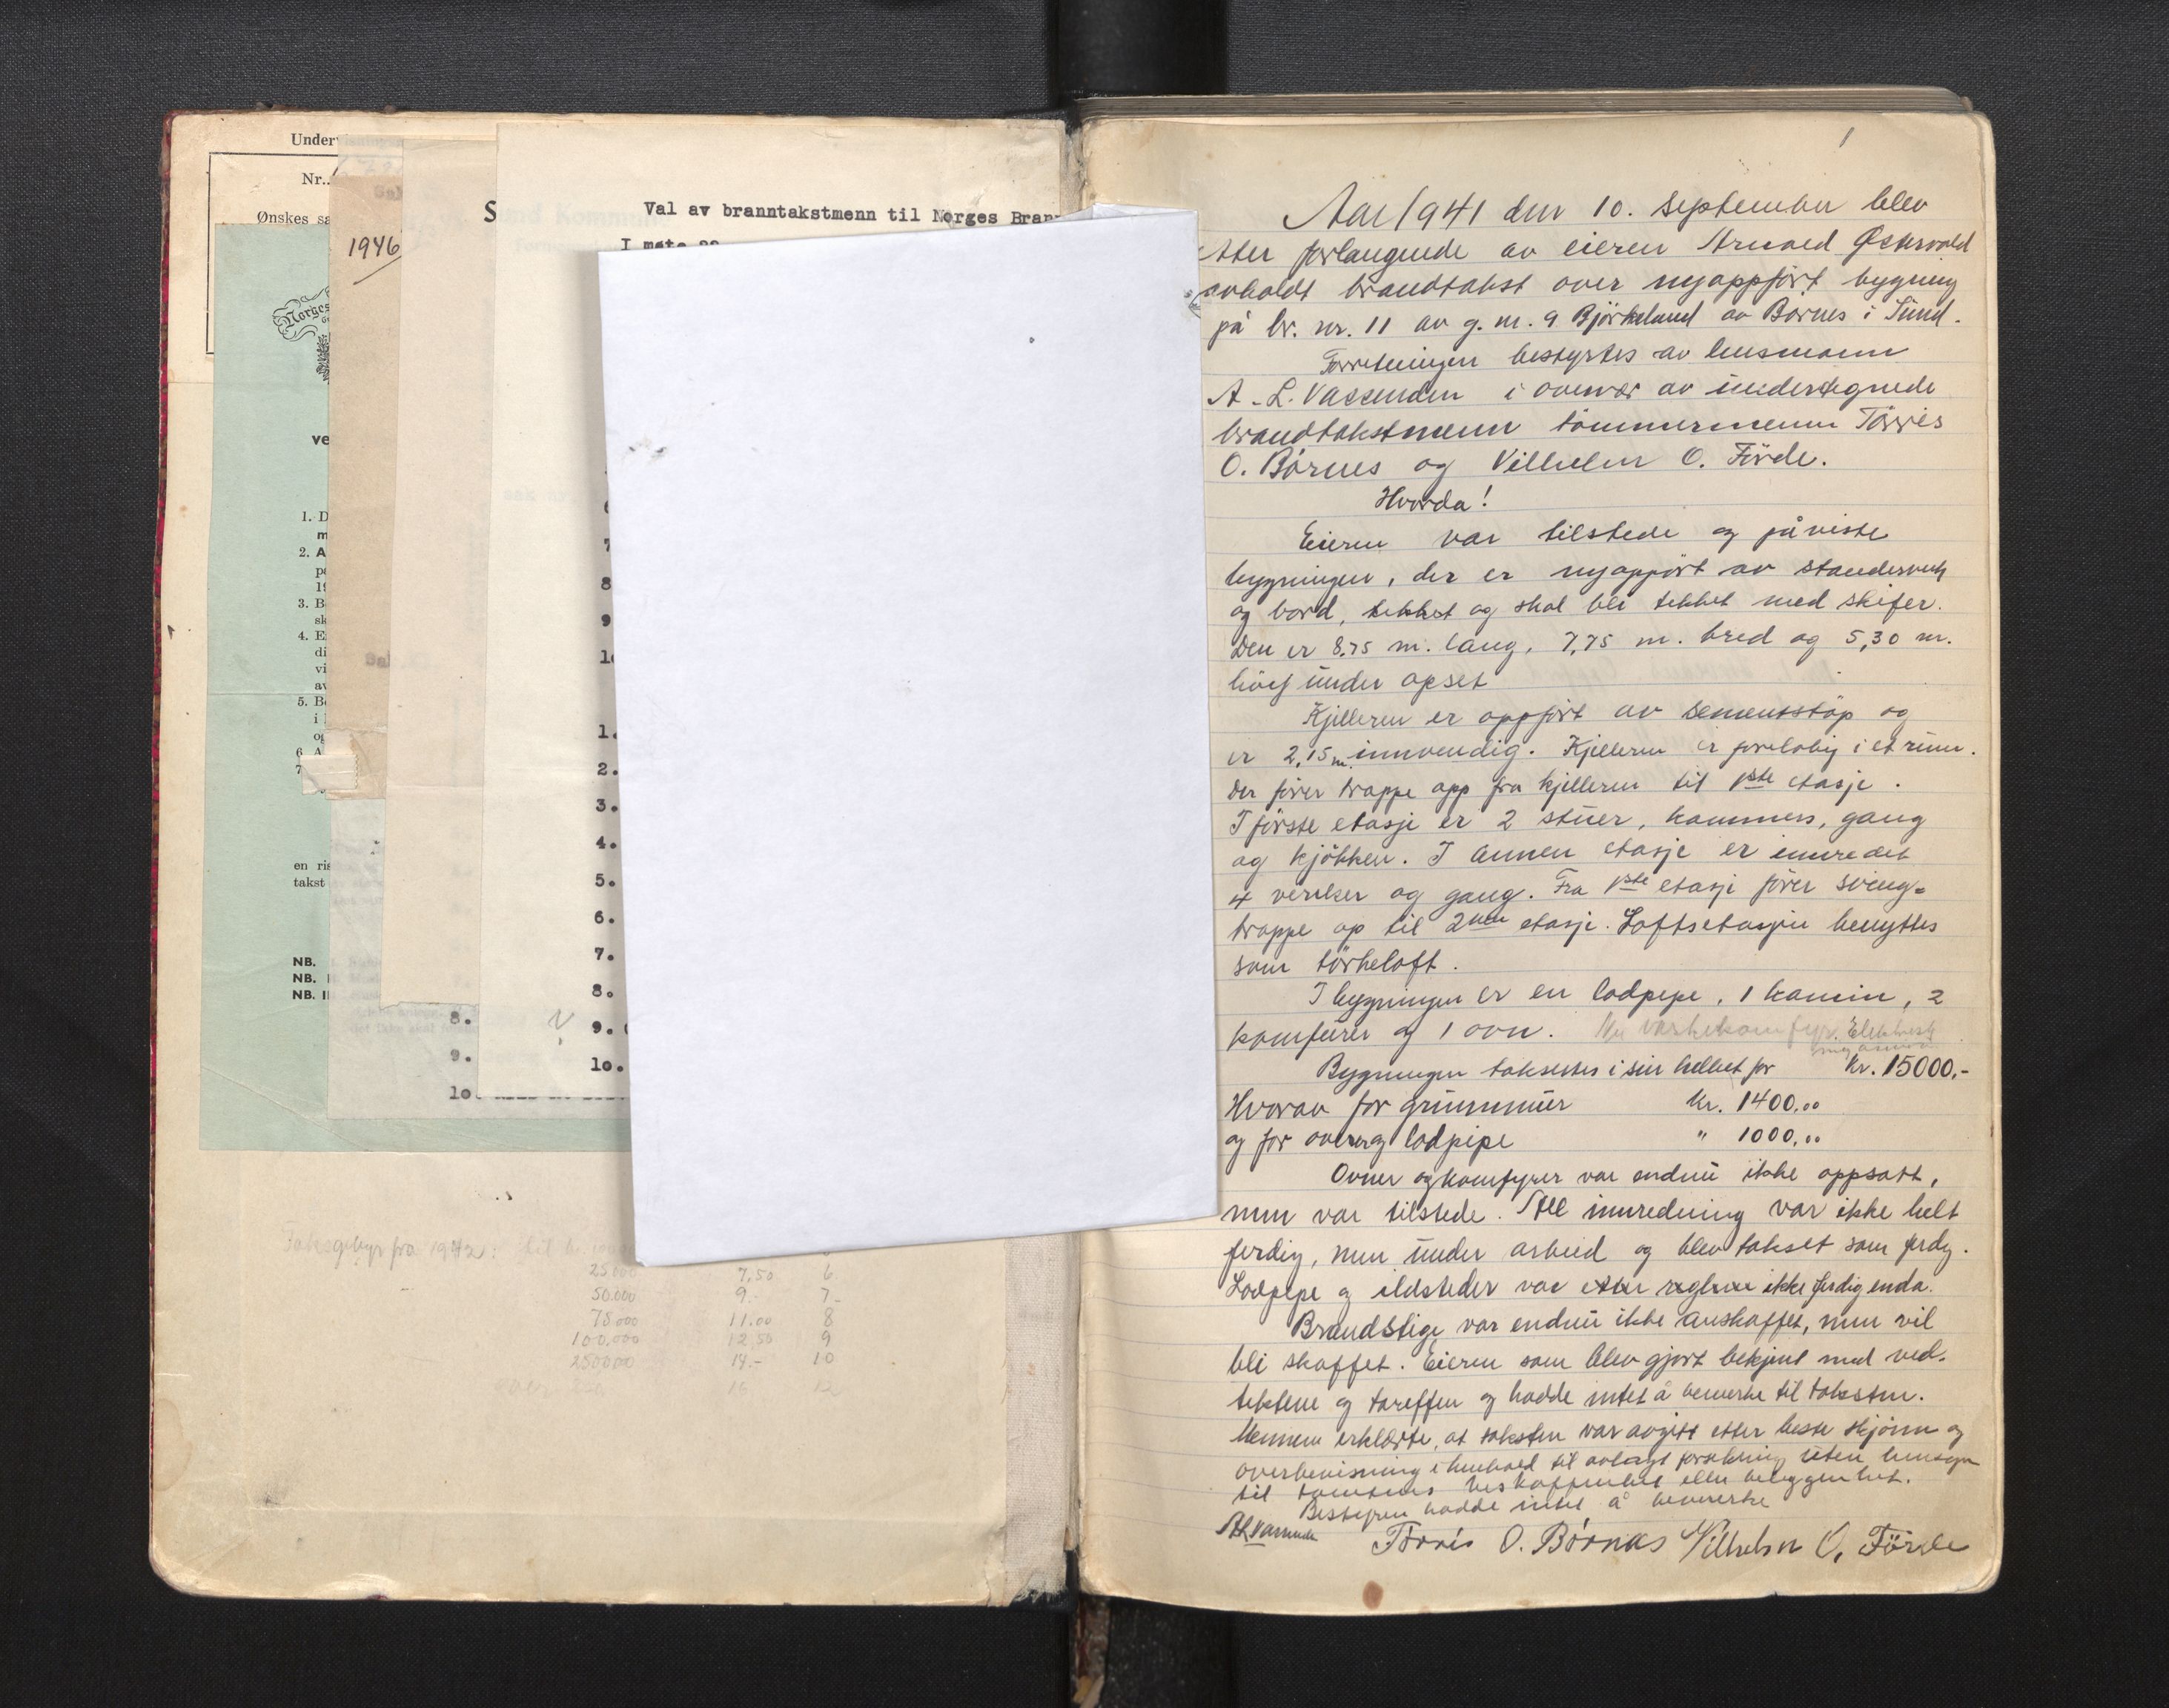 Under
Nr.
Ønskes sa
1946
Norges
ve
1. D
m
2. A
pe
19
3. B
sk
4. E
di
vi
av
5. Be
i
og
6 A
7
en ris
takst
NB.
NB. I
NB. II
8.
9.
10.
S
Val av branntakstmenn til Norges Bran
I møte
7
8
9
1
1.
2.
3.
4.
5.
6.
7.
8.
9.
10.
Taksgebyr fra 1942: til kr.
25.000 7,50 6
50.000 9.- 7-
75000 11.00 8
100.000 12,50 9
250000 14.- 10
16 12
1
Aar 1941 den 10. september blev
etter forlangende av eieren Arnold Østervold
avholdt brandtakst over nyoppført bygning
på br. nr. 11 av g. nr. 9 Björkelund av Børnes i Sund.
Forretningen bestyrtes av lensmann
A. L. Vassenden i overvær av undertegnede
brandtakstmenn tømmermenn Tørris
O. Børnes og Vilhelm O. Förde.
Hvorda!
Eieren var tilstede og påviste
bygningen, der er nyoppført av standerverk
og bord, tekket og skal bli tekket med skifer.
Den er 8,75 m. lang, 7,75 m. bred og 5,30 m.
höi under opset
Kjelleren er oppført av sementstöp og
er 2,15 m. innvendig. Kjelleren er foreløbig i et rum.
Der fører trappe opp fra kjelleren til 1ste etasje.
I første etasje er 2 stuer, kammers, gang
og kjökken. I annen etasje er innredet
4 verelser og gang. Fra 1ste etasje fører sving-
trappe op til 2nen etasje. Loftsetasjen benyttes
som tørkeloft.
I bygningen er en lodpipe, 1 kamin, 2
komfurer og 1 ovn. Elektrisk
Bygningen takseres i sin helhet for Kr. 15000,-
Hvorav for grunnmur kr. 1400,00
og for lodpipe " 1000,00
Ovner og komfyrer var endnu ikke oppsatt,
men var tilstede. All innredning var ikke helt
ferdig, men under arbeid og blev takset som ferdig.
Lodpipe og ildsteder var etter reglene ikke ferdig enda.
Brandstige var endnu ikke anskaffet, men vil
bli skaffet. Eieren som blev gjort bekjent med ved-
tektene og tareffen og hadde intet å bemerke til taksten.
Mennene erklærte, at taksten var avgitt etter beste skjönn og
overbevisning i henhold til avlagt forsikring uten hensyn
til tomtens beskaffenhet eller beliggenhet.
Bestyren hadde intet å bemerke
AL Vassenden Tørris O. Børnes Vilhelm O. Förde